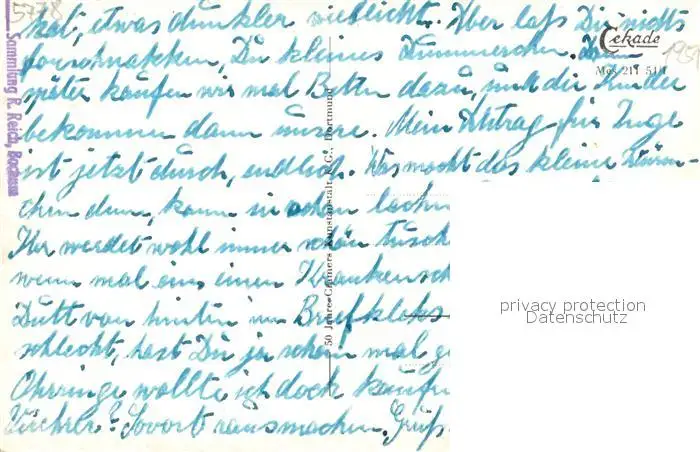 5778
hat, etwas dunkler vielleicht. Aber laß Dir nichts
Cekade
1951
vorschnakken, Du kleines Dummerchen. Dann
Mos 211 51/1
später kaufen wir mal Betten dazu, und die Kinder
bekommen dann unsere. Mein Antrag für Inge
ist jetzt durch, endlich. Was macht das kleine Würm-
chen denn, kann sie schon lachn
Ihr werdet wohl immer schön tusch
wenn mal eins einen Krankensch
Dutt von hinten im Briefkloks
schlecht, hast Du ja schon mal ge
Ohrringe wollte ich doch kaufn
? Sovort rausmachen. Gruß
Sammlung R. Reich,
50 Jahre Cramers Kunstanstalt K.G., Dortmund
privacy protection
Datenschutz